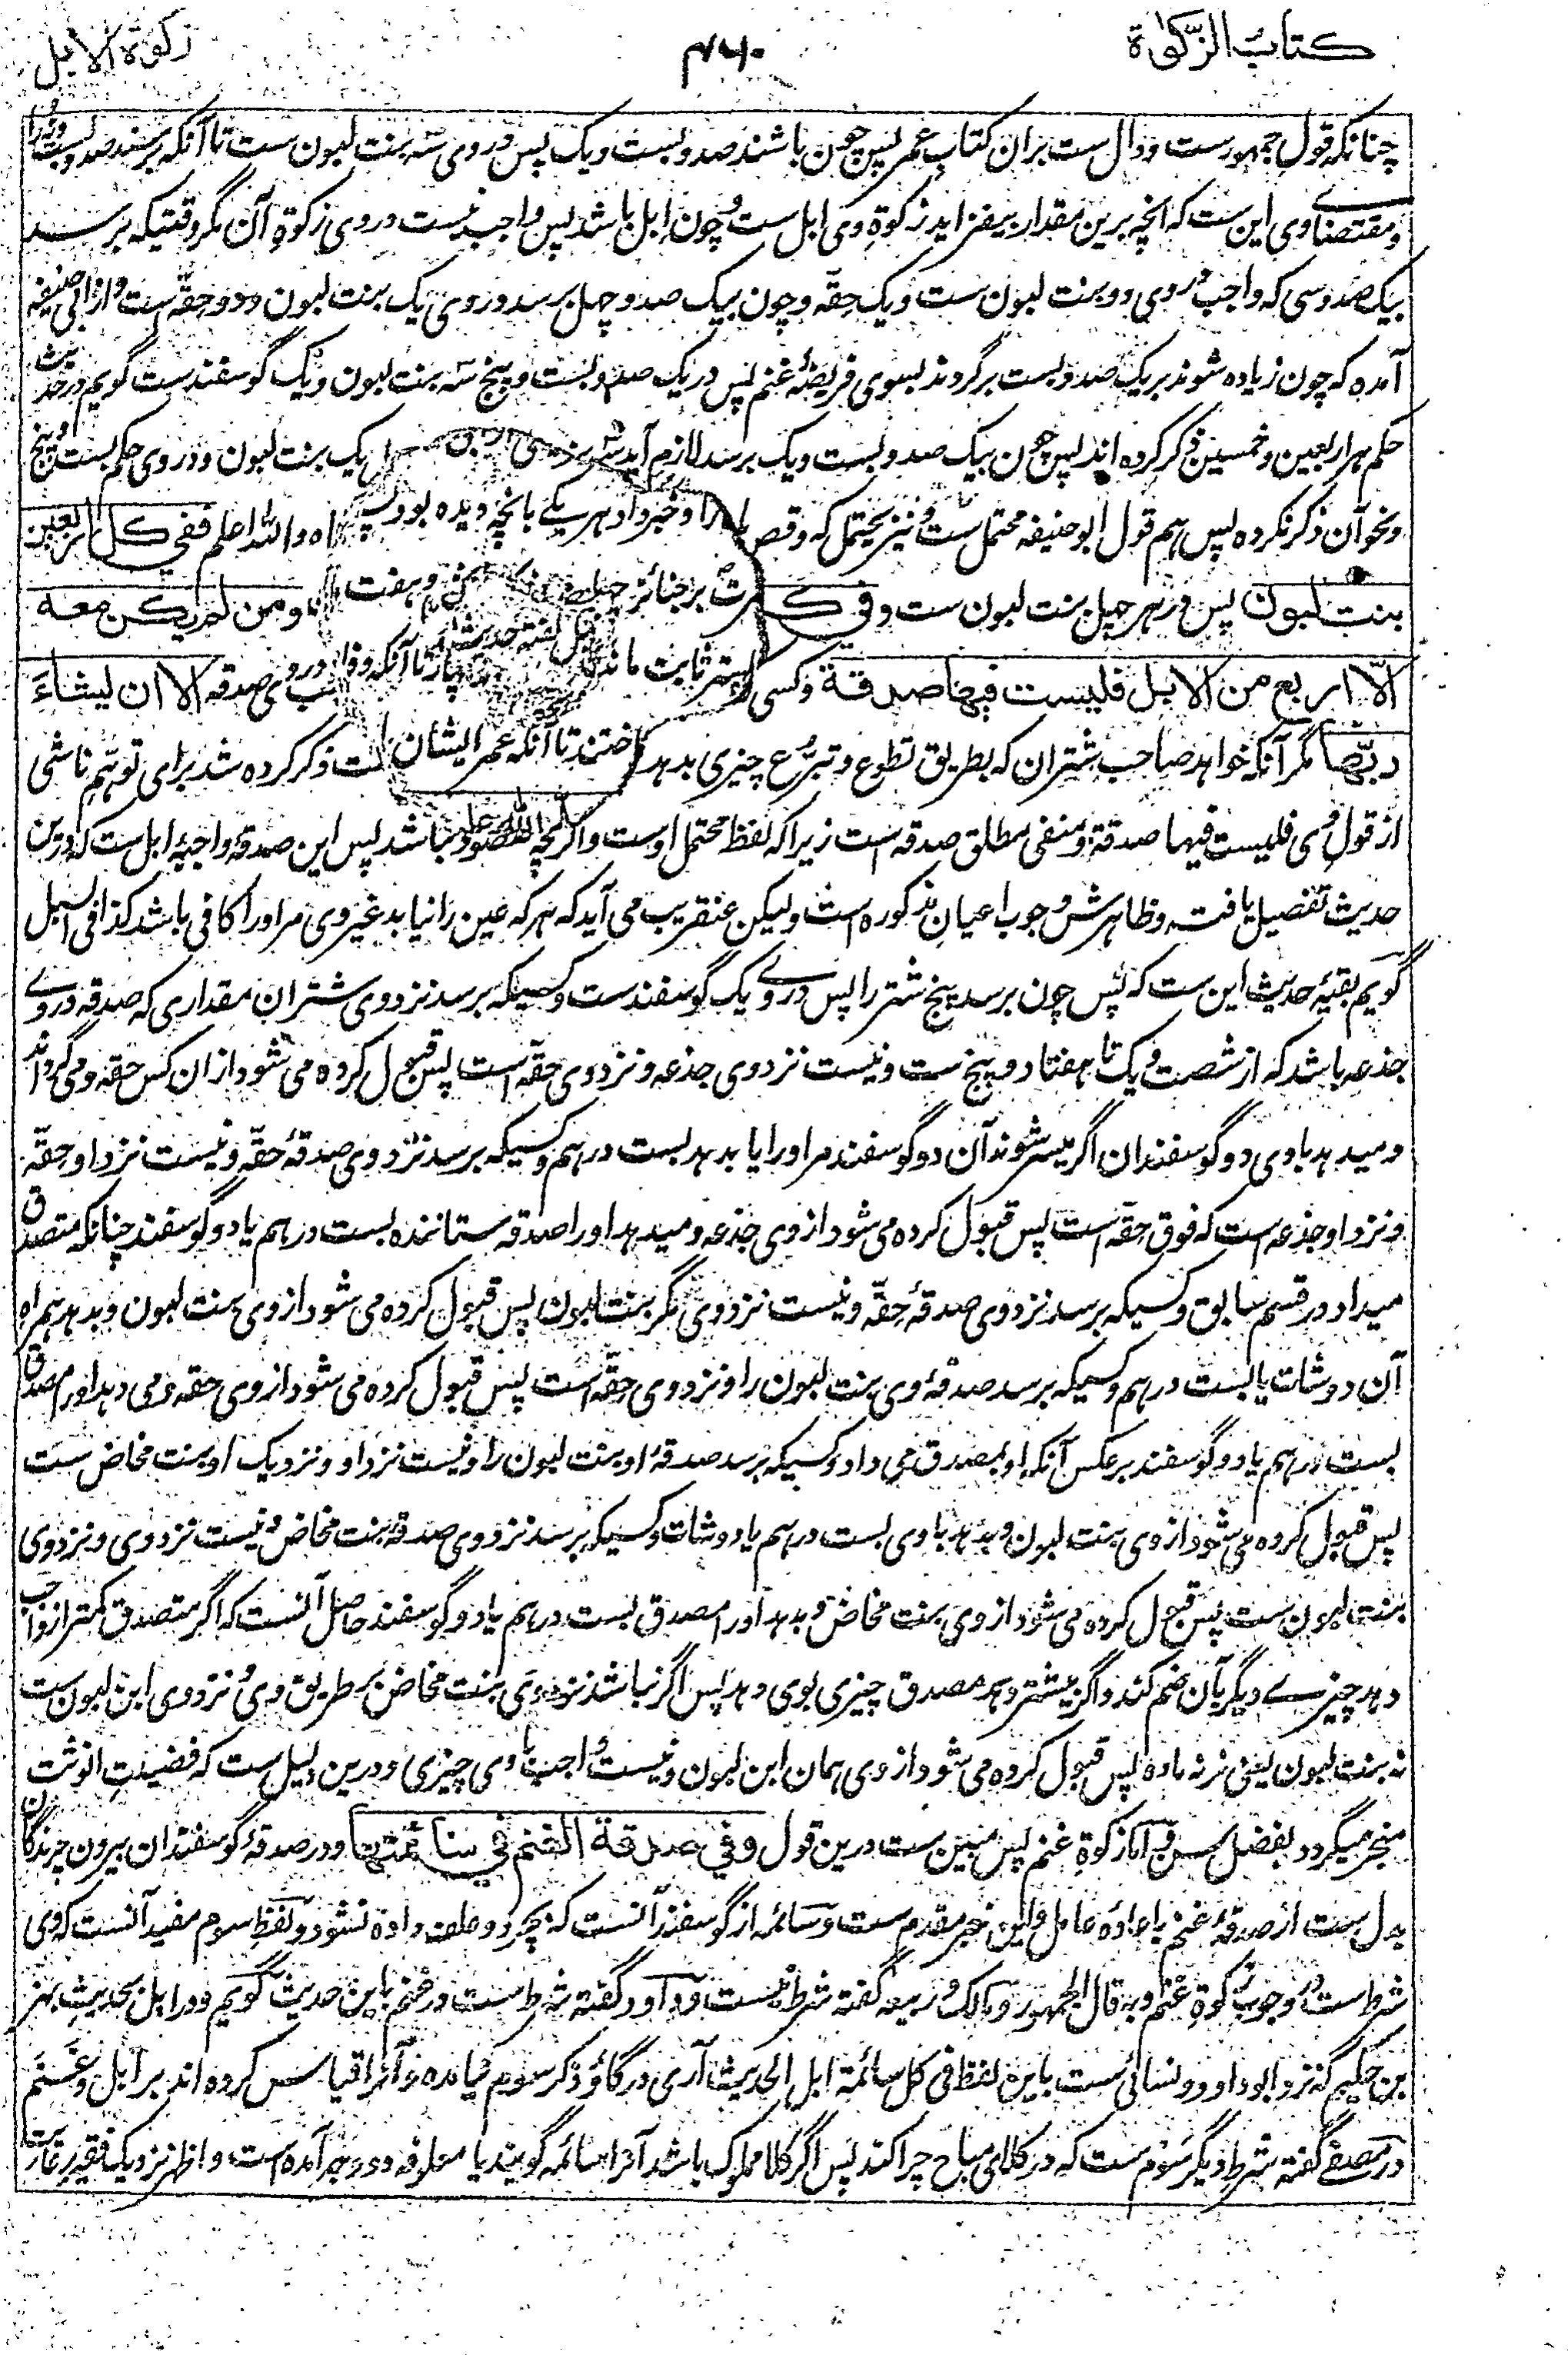 کتاب الزکوٰة
۴۶۰
زکوٰة الابل
چنانکه قول جمهورست و دال ست بران کتاب عمر پس چون باشند صد و بست و یک پس در وی سه بنت لبون ست تا آنکه برسند صد و بست و نه را
و مقتضای وی این ست که انچه برین مقدار بیفزاید زکوةِ وی ابل ست و چون ابل باشد پس واجب نیست در وی زکوةِ آن مگر وقتیکه برسد
بیک صد و سی که واجب در وی دو بنت لبون ست و یک حقّه و چون بیک صد و چهل برسد در وی یک بنت لبون و دو حِقّه ست و از ابی حنیفه
آمده که چون زیاده شوند بر یک صد و بست برگردند بسوی فریضهٔ غنم پس در یک صد و بست و پنج سه بنت لبون و یک گوسفندست گویم در حدیث
حکم هر اربعین و خمسین ذکر کرده اند پس چون بیک صد و بست و یک برسد لازم آید یک بنت لبون و در وی حکم بست و پنج
و نحو آن ذکر نکرده پس هم قول ابوحنیفه محتمل ست و نیز یحتمل که وقص را و خبر داد هر یکے بانچه دیده بود والله اعلم ففي كل اربعين
بنت لبون پس در هر چهل بنت لبون ست وفي بر جنائز چهل و هفت ومن لم يكن معه
الّا اربع من الابل فليست فيها صدقة و کسی ثابت تا آنکه در وی صدقه الا ان يشاء
ربّها مگر آنکه خواهد صاحب شتران که بطریق تطوع و تبرّع چیزی بدهد تا آنکه عمر ایشان ذکر کرده شد برای توهّم ناشی
از قول وی فلیست فیها صدقة و منفی مطلق صدقه است زیراکه لفظ محتمل اوست و اگرچه مقصود نباشد پس این صدقهٔ واجبهٔ ابل ست که درین
حدیث تفصیل یافت و ظاهرش وجوب اعیان مذکوره است ولیکن عنقریب می آید که هر که عین را نیابد غیر وی مر او را کافی باشد کذا فی السبل
گویم بقیهٔ حدیث این ست که پس چون برسد پنج شتر را پس در وے یک گوسفندست و کسیکه برسد نزد وی شتران مقداری که صدقه در وے
جذعه باشد که از شصت و یک تا هفتاد و پنج ست و نیست نزد وی جذعه و نزد وی حقّه است پس قبول کرده می شود ازان کس حقه و می گرداند
و میدهد با وی دو گوسفندان اگر میسر شوند آن دو گوسفند مر او را یا بدهد بست درهم و کسیکه برسد نزد وی صدقهٔ حقّه و نیست نزد او حِقّه
و نزد او جذعه است که فوق حِقّه است پس قبول کرده می شود از وی جذعه و میدهد او را صدقه ستاننده بست درهم یا دو گوسفند چنانکه متصدق
میداد در قسم سابق و کسیکه برسد نزد وی صدقهٔ حِقّه و نیست نزد وی مگر بنت لبون پس قبول کرده می شود از وی بنت لبون و بدهد همراه
آن دو شات یا بست درهم و کسیکه برسد صدقهٔ وی بنت لبون را و نزد وی حِقّه است پس قبول کرده می شود از وی حقه و می دهد او را مصدق
بست درهم یا دو گوسفند برعکس آنکه او بمصدق می داد و کسیکه برسد صدقهٔ او بنت لبون را و نیست نزد او و نزدیک او بنت مخاض ست
پس قبول کرده می شود از وی بنت لبون و بدهد با وی بست درهم یا دو شات و کسیکه برسد نزد وی صدقهٔ بنت مخاض و نیست نزد وی و نزد وی
بنت لبون ست پس قبول کرده می شود از وی بنت مخاض و بدهد او را مصدق بست درهم یا دو گوسفند حاصل آنست که اگر متصدق کمتر از واجب
دهد چیزے دیگر بآن ضم کند و اگر بیشتر دهد مصدق چیزی بوی دهد پس اگر نباشد نزد وی بنت مخاض بر طریق وی و نزد وی ابن لبون ست
نه بنت لبون یعنی نر نه ماده پس قبول کرده می شود از وی همان ابن لبون و نیست واجب با وی چیزی و درین دلیل ست که فضیلتِ انوثت
منجر میگردد بفضل سن امّا زکوةِ غنم پس مبین ست درین قول وفي صدقة الغنم في سائمتها و در صدقهٔ گوسفندان بیرون چرندگان
بدل ست از صدقهٔ غنم باعادهٔ عامل و این خبر مقدم ست و سائمه از گوسفند آنست که بچرد و علف داده نشود و لفظِ سوم مفید آنست که وی
شرط ست در وجوب زکوةِ غنم و به قال الجمهور و مالک و ربیعه گفته شرط نیست و داود گفته شرط ست در غنم باین حدیث گویم و در ابل بحدیث بهز
بن حکیم که نزد ابوداود و نسائی ست باین لفظ فی کل سائمة ابل الحدیث آری در گاو ذکر سوم نیامده و آنرا قیاس کرده اند بر ابل و غنم
در مصفے گفته شرط دیگر سَوم ست که در کلای مباح چرا کند پس اگر کلا مملوک باشد آنرا سائمه گویند یا معلوفه دو وجه آمده است و اظهر نزدیک فقیر